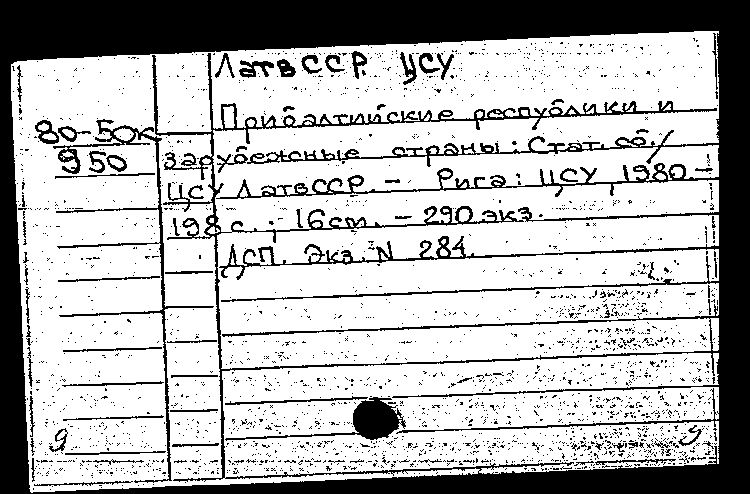 ЛатвССР. ЦСУ.
80-50к Прибалтийские республики и
950 зарубежные страны : Стат. сб. /
ЦСУ ЛатвССР. – Рига : ЦСУ, 1980. –
198 с. ; 16 cm. – 290 экз.
ДСП. Экз. N 284.
g g